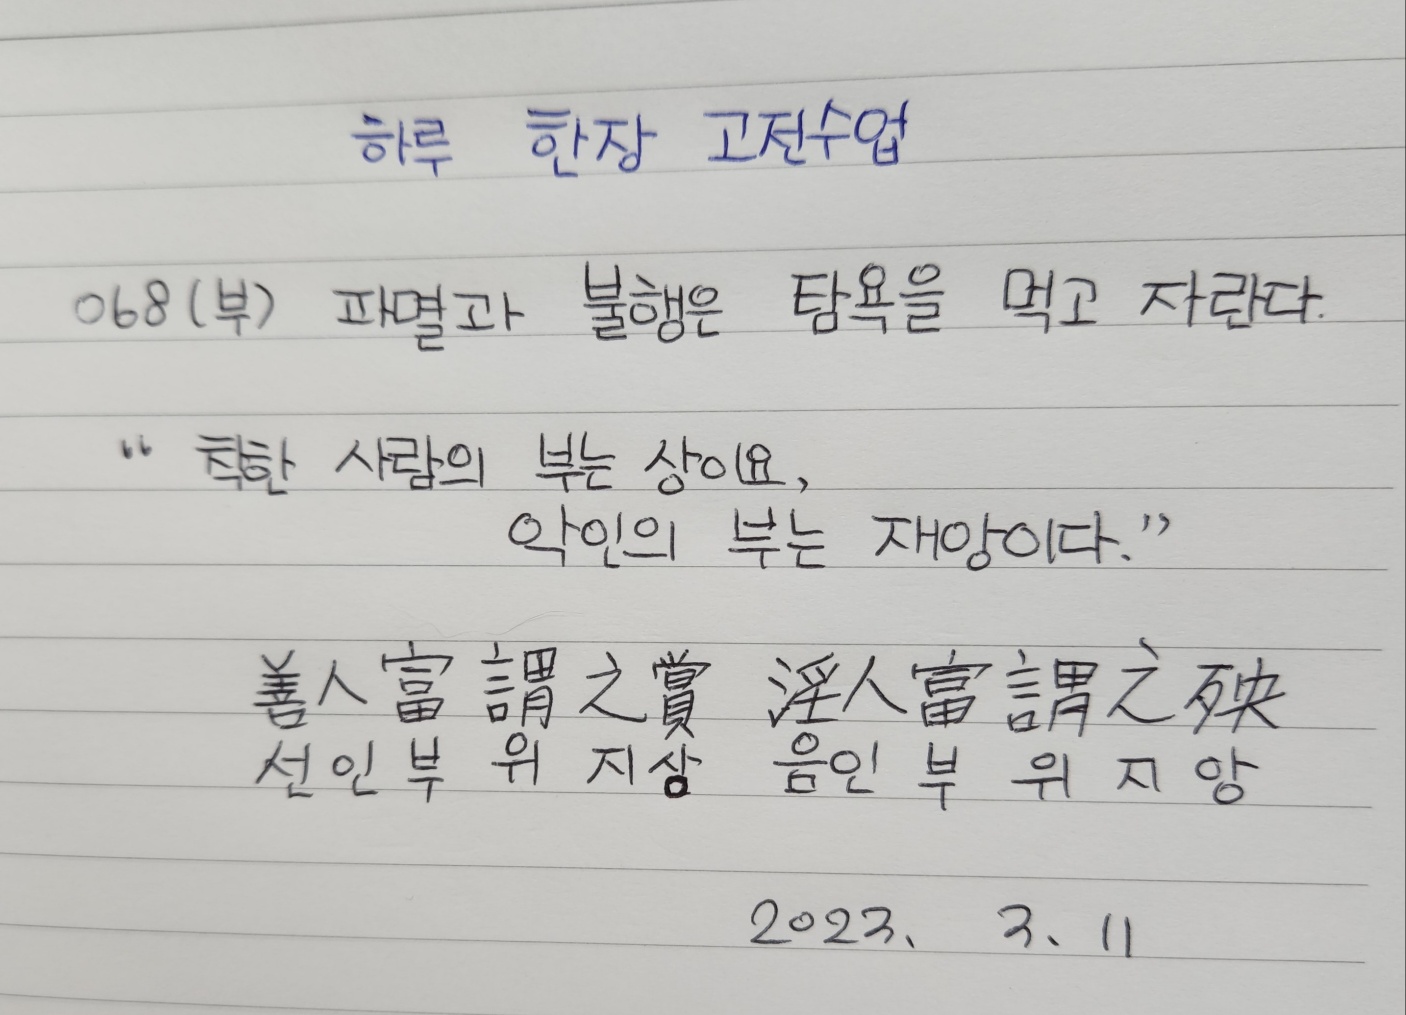 하루 한장 고전수업
068(부) 파멸과 불행은 탐욕을 먹고 자란다.
“착한 사람의 부는 상이요,
악인의 부는 재앙이다.”
善人富謂之賞 淫人富謂之殃
선인부위지상 음인부위지앙
2023. 3. 11